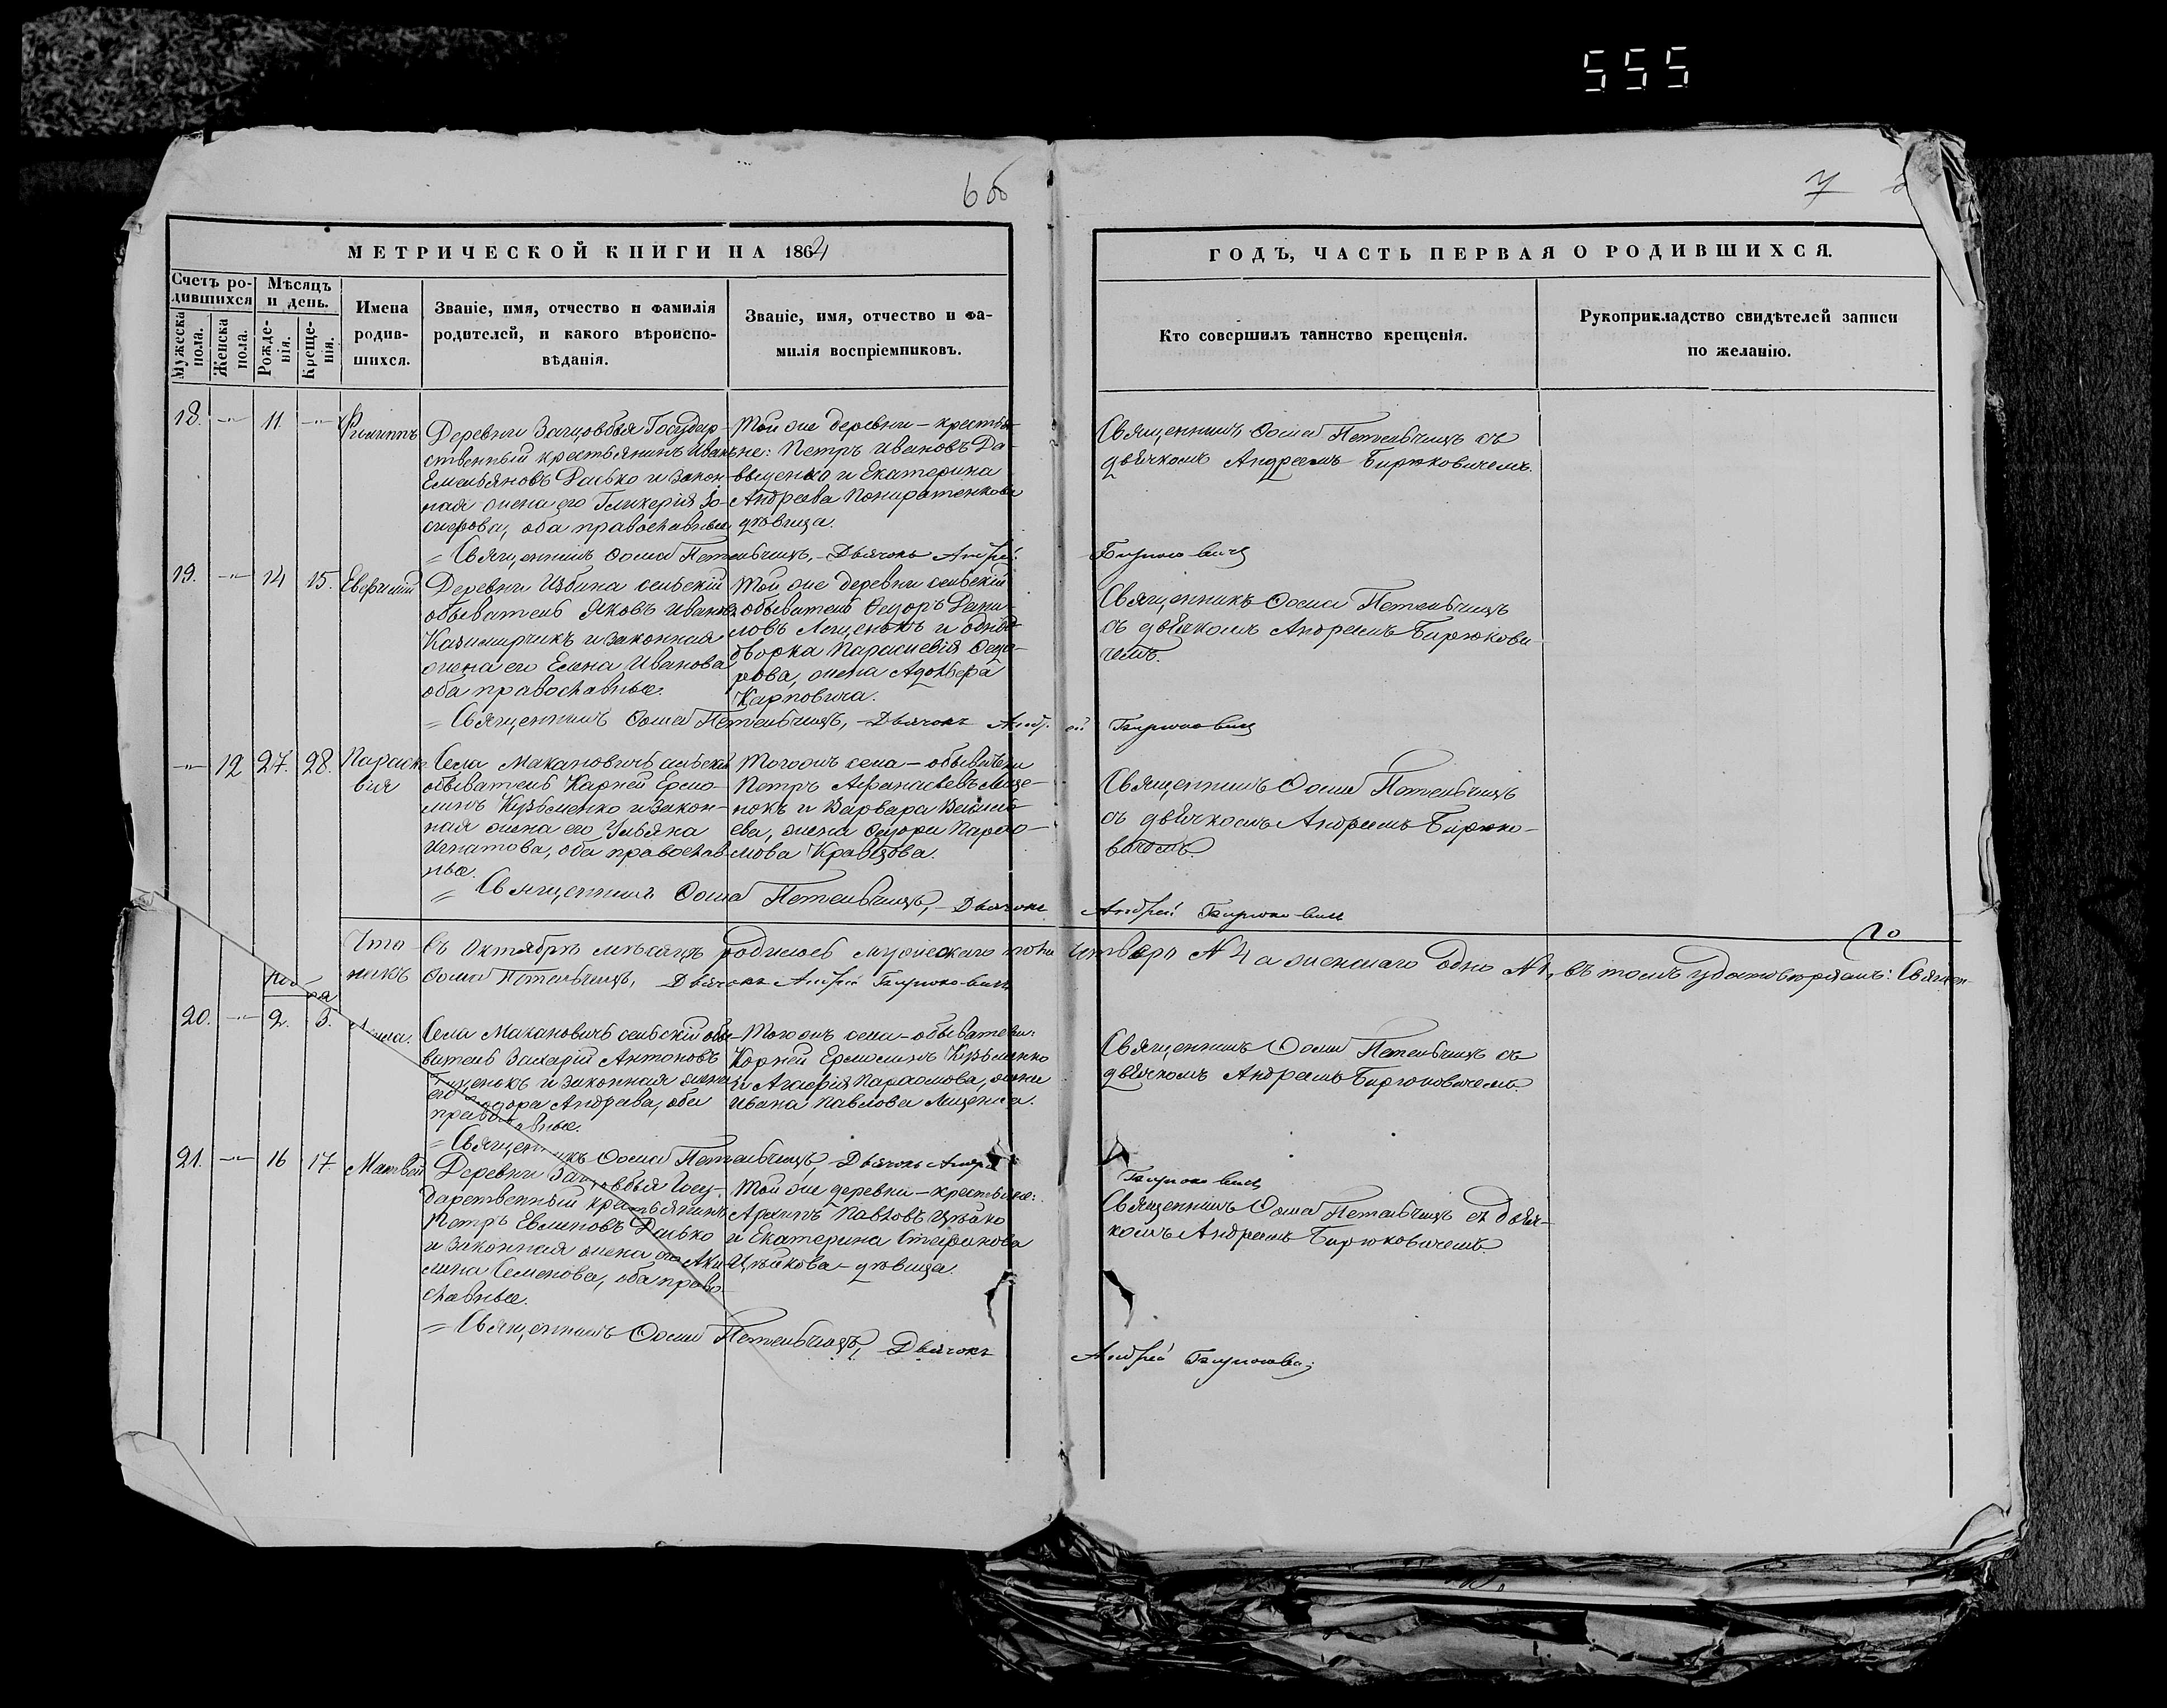 555
6об
7
МЕТРИЧЕСКОЙ КНИГИ НА 1864
ГОДЪ, ЧАСТЬ ПЕРВАЯ О РОДИВШИХСЯ.
Счетъ ро-
дившихся
Мужеска
пола.
Женска
пола.
Мѣсяцъ
и день.
Рожде-
нія.
Креще-
нія.
Имена
родив-
шихся.
Званіе, имя, отчество и фамилія
родителей, и какого вѣроиспо-
вѣданія.
Званіе, имя, отчество и фа-
милія воспріемниковъ.
Кто совершилъ таинство крещенія.
Рукоприкладство свидѣтелей записи
по желанію.
18. -"- 11. -"- Филиппъ
Деревни Загцовбья Государ-
ственный крестьянинъ Иванъ
Емельяновъ Дасько и закон-
ная жена его Гликерія
оба православные
Той же деревни - крестья-
не: Петръ Ивановъ Да-
выденко и Екатерина
Андреева Понуратенкова
дѣвица.
Священникъ Ѳома Петельчицъ съ
дьячкомъ Андреемъ Бирюковичемъ.
= Священникъ Ѳома Петельчицъ, - Дьячокъ Андрей Бирюковичъ
19. -"- 14 15. Евфимій
Деревни Избина сельскій
обыватель Яковъ Ивановъ
Казимирчикъ и законная
жена его Елена Иванова
оба православные.
Той же деревни сельскій
обыватель Ѳедоръ Дани-
ловъ Лещенокъ и однод-
дворка Параскевія Ѳедо-
рова, жена
Карповича.
Священникъ Ѳома Петельчицъ
съ дьячкомъ Андреемъ Бирюкови-
чемъ.
= Священникъ Ѳома Петельчицъ, - Дьячокъ Андрей Бирюковичъ
-"- 12 27. 28. Параске-
вія
Села Макановичъ сельскій
обыватель Карней Ермо-
линъ Кузьменко и закон-
ная жена его Ульяна
Игнатова, оба православ-
ные.
Тогожъ села - обыватели
Петръ Афанасьевъ Леще-
нокъ и Варвара Василь-
ева, жена Ѳедора Пархо-
мова Кравцова.
Священникъ Ѳома Петельчицъ
съ дьячкомъ Андреемъ Бирюко-
вичемъ.
= Священникъ Ѳома Петельчицъ, - Дьячокъ Андрей Бирюковичъ
Что въ Октябрѣ мѣсяцѣ родилось мужескаго пола четверо № 4 а женскаго одно № 1, въ томъ удостовѣряемъ: Священ-
никъ Ѳома Петельчицъ, Дьячокъ Андрей Бирюковичъ
20. -"- 2. 3.
Села Макановичъ сельскій обы-
ватель Захарій Антоновъ
и законная жена
его Ѳедора Андреева, оба
православные.
Тогожъ села - обыватели:
Корней Ермолинъ Кузьменко
и Агафія Пархомова, жена
Ивана Павлова Лещенка.
Священникъ Ѳома Петельчицъ съ
дьячкомъ Андреемъ Бирюковичемъ.
= Священникъ Ѳома Петельчицъ, - Дьячокъ Андрей Бирюковичъ
21. -"- 16 17 Матвей
Деревни Загцовбья Госу-
дарственный крестьянинъ
Петръ Дасько
и законная жена его Аку-
лина Семенова, оба право-
славные.
Той же деревни - крестьяне:
Архипъ Павловъ Цѣйко
и Екатерина Стефанова
Цѣйкова - дѣвица.
Священникъ Ѳома Петельчицъ съ дьяч-
комъ Андреемъ Бирюковичемъ.
= Священникъ Ѳома Петельчицъ, Дьячокъ Андрей Бирюкович